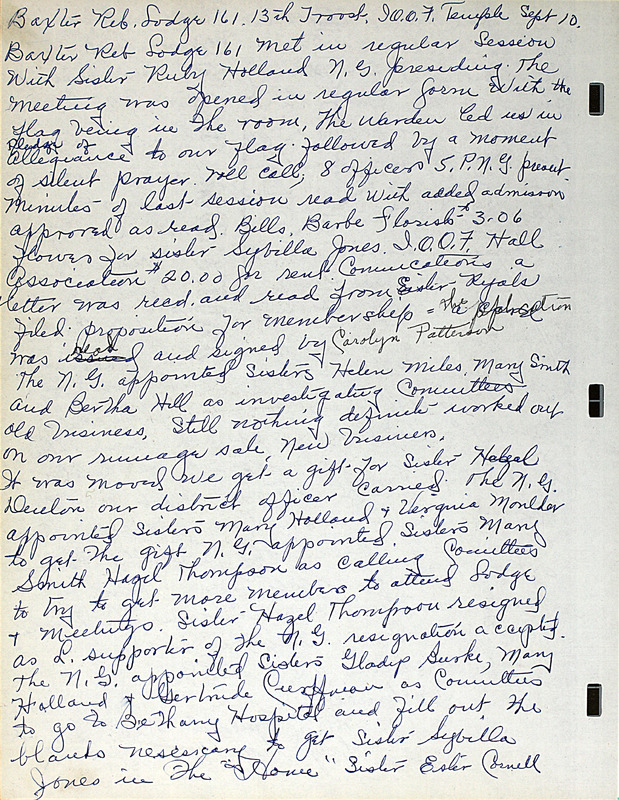 Baxter Reb. Lodge 161. 13th Troost. I.O.O.F. Temple Sept 10.
Baxter Reb Lodge 161 Met in regular Session
With Sister Ruby Holland N.G. presiding. The
meeting was opened in regular form With the
flag being in The room, The Warden led us in
pledge of
allegiance to our flag. followed by a moment
of silent prayer. roll call, 8 officers 5. P.N.G. present
Minutes of last session read With added admission
approved as read. Bills, Barbe Florish #3.06
flower for sister Sybilla Jones. I.O.O.F. Hall
Association #20.00 for rent. Comunications a
letter was read. and read from Sister Ryals
filed. proposition for membership = The application
was read and signed by Carolyn Patterson
The N.G. appointed Sisters Helen Miles, Mary Smith
and Bertha Hill as investigating Committees
old business, Still nothing definite worked out
on our rumage sale, New Business,
It was moved we get a gift for Sister Hazel
Denton our district officer carried. The N.G.
appointed Sisters Mary Holland & Verginia Moulder
to get The gift N.G. appointed Sisters Mary
Smith Hazel Thompson as calling Comittees
to try to get more members to attend Lodge
& Meetings. Sister Hazel Thompson resigned
as L. supporter of The N.G. resignation accepted.
The N.G. appointed Sisters Gladys Burke, Mary
Holland & Gertrude as Comittees
to go to Bethany Hospital and fill out The
blanks nesescary to get Sister Sybilla
Jones in The "Home" Sister Ester Cornell